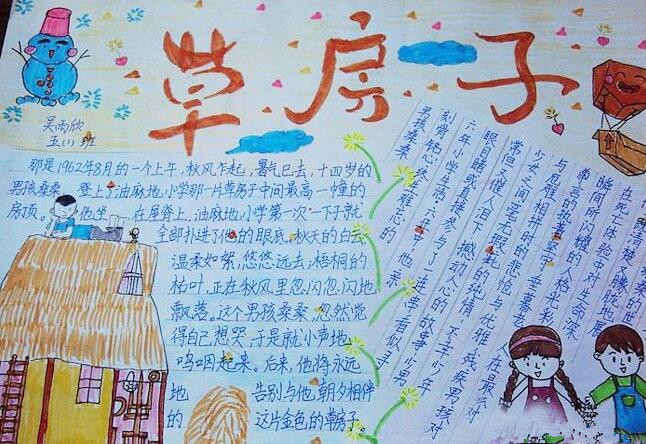 草房子
吴雨欣
五(1)班
那是1962年8月的一个上午,秋风乍起,暑气已去,十四岁的
男孩桑桑,登上了油麻地小学那一片草房子中间最高一幢的
房顶。他坐在屋脊上,油麻地小学第一次一下子就
全部扑进了他的眼底。秋天的白云
温柔如絮,悠悠远去;梧桐的
枯叶,正在秋风里忽闪忽闪地
飘落。这个男孩桑桑,忽然觉
得自己想哭,于是就小声地
呜咽起来。后来,他将永远
地告别与他朝夕相伴
的这片金色的草房子。
男孩桑桑
刻骨铭心,终生难忘的
六年小学生活。六年中,他亲
眼目睹或直接参与了一连串看似寻
常但又催人泪下、撼动人心的故事:少男
少女之间毫无瑕疵的纯情,不幸少年
与厄运相拼时的悲怆与优雅,残疾男孩对
尊严的执着坚守
瞬间所闪耀的人格光彩
在死亡体验中对生命的深